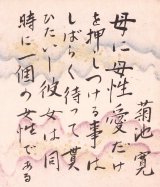 母に母性愛だけ
を押しつける事は
しばらく待つて貰
ひたい、彼女は同
時に一個の女性である
菊池寛